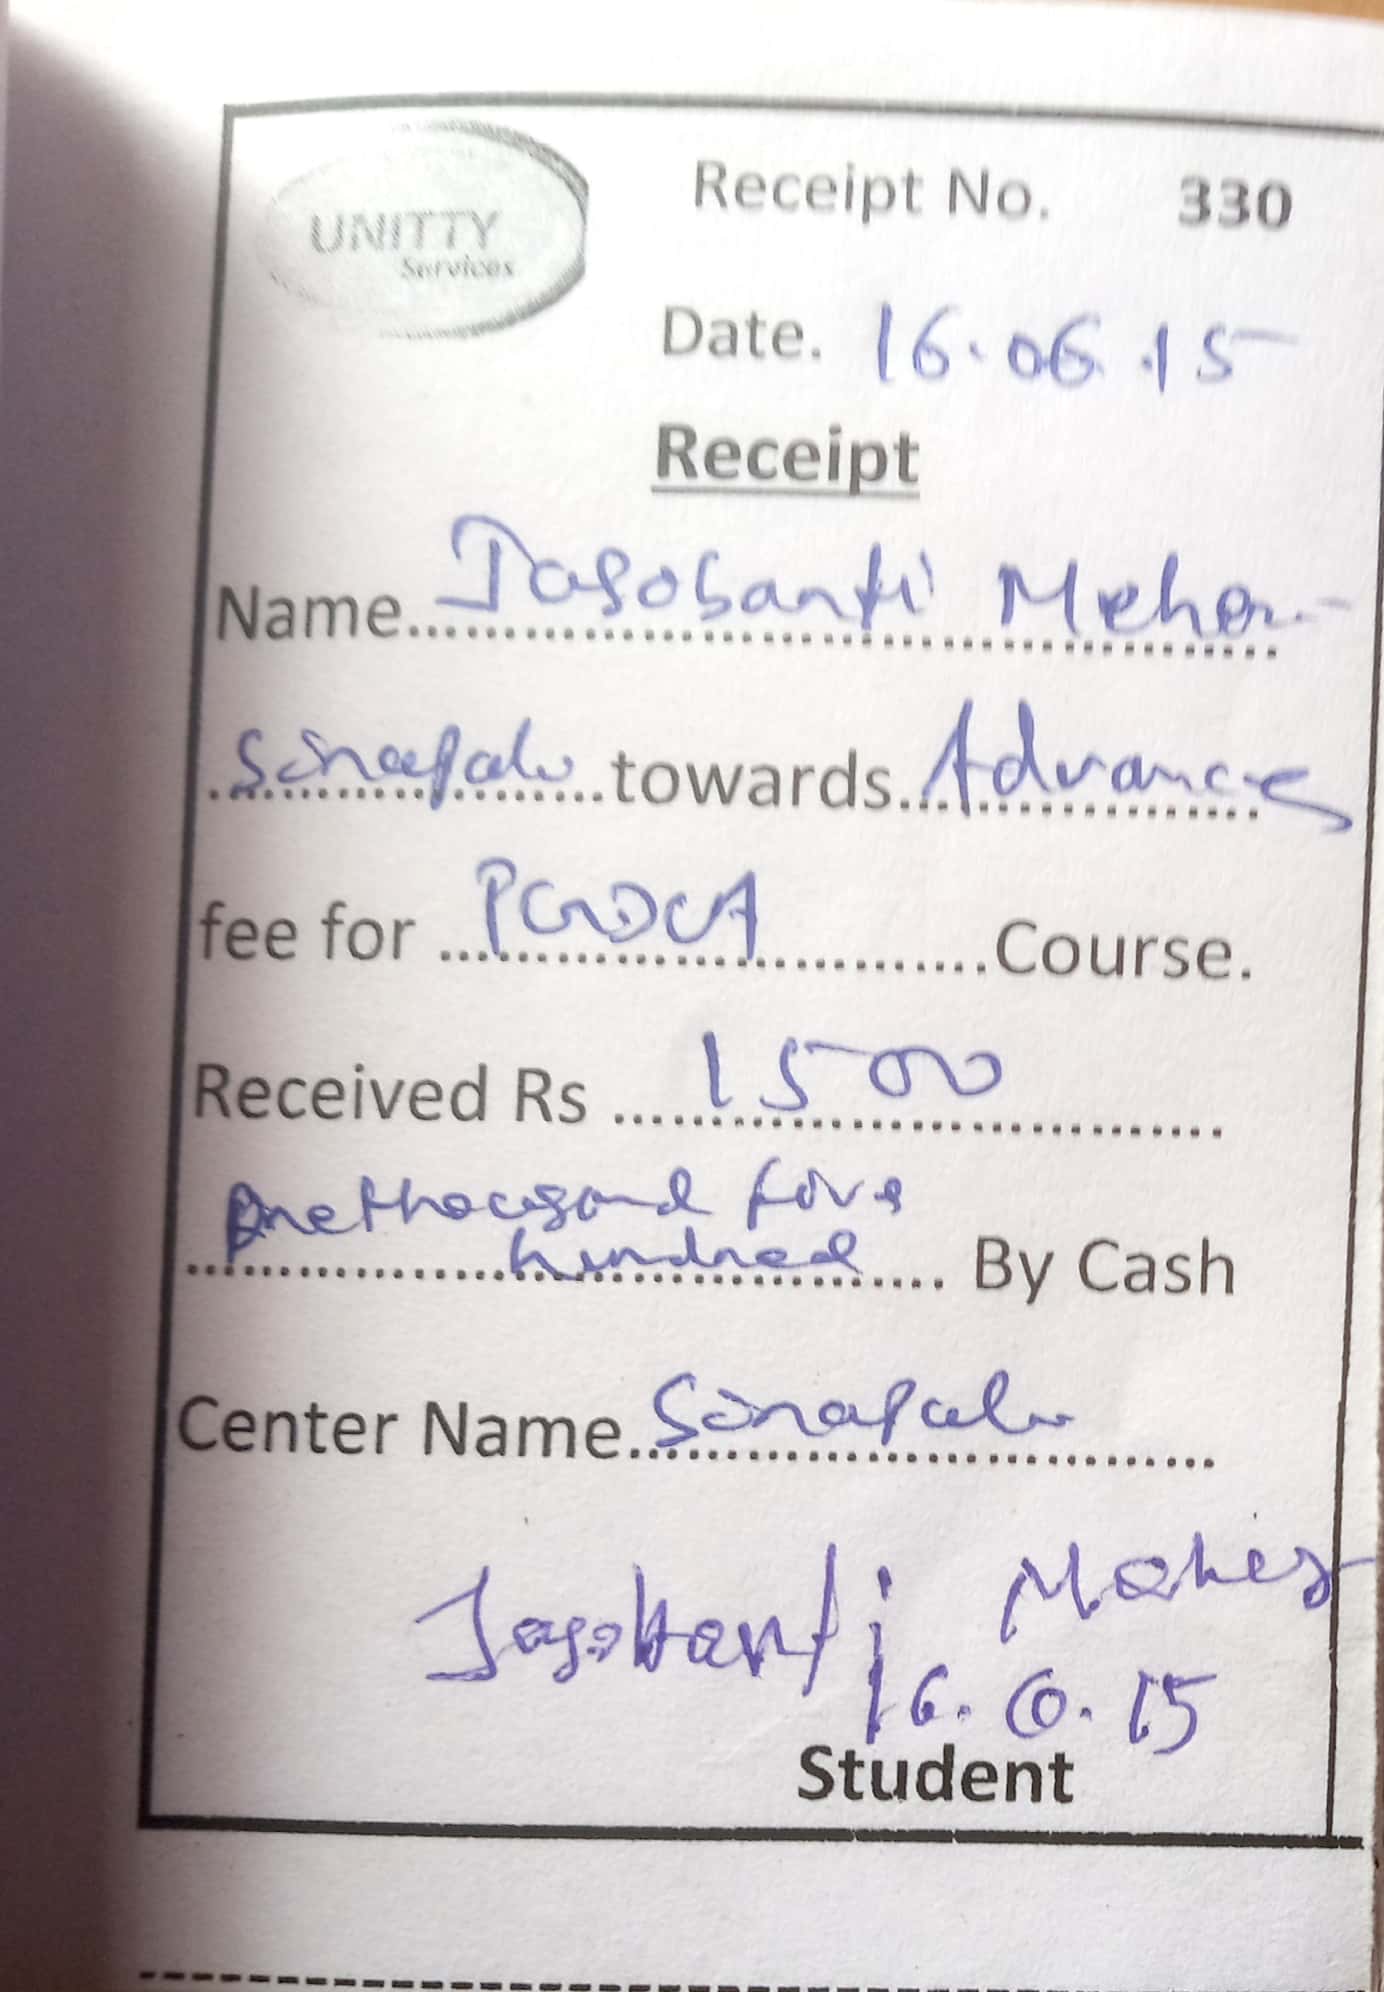 UNITTY
Services
Receipt No. 330
Date. 16.06.15
Receipt
Name Jasobanti Meher
Sinapali towards Advance
fee for PGDCA Course.
Received Rs 1500
One thousand five
hundred By Cash
Center Name Sinapali
Jasobanti Meher
16.6.15
Student